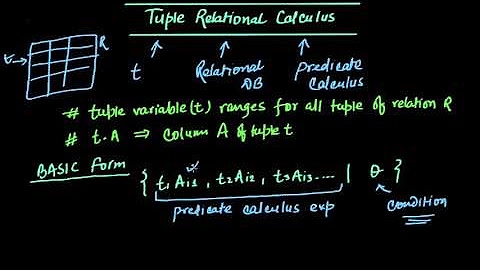 Tuple Relational Calculus
R
t
t
Relational DB
Predicate Calculus
# tuple variable(t) ranges for all tuple of relation R
# t.A ⇒ column A of tuple t
BASIC form
{ t1 Ai1 , t2 Ai2 , t3 Ai3 .... | θ }
predicate calculus exp
condition